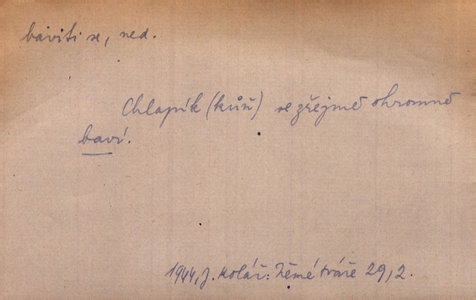 baviti se, ned.
Chlapík (kůň) se zřejmě ohromně
baví.
1944, J. Kolář: Němé tváře 29, 2.